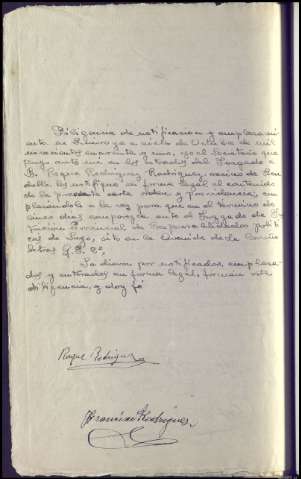 Diligencia de notificación y emplazami
ento en Ribeira a siete de Octubre de mil
novecientos cuarenta y uno, yo el Secretario que
tengo ante mi en los estrados del Juzgado a
D. Roque Rodriguez Rodriguez, vecino de
della les notifique en forma legal el contenido
de la precedente carta orden y providencia, em
plazándole a la vez para que en el término de
cinco dias comparezca ante el Juzgado de Ins
trucción Provincial de Responsabilidades polít
icas de Lugo, sito en la Avenida de la Coruña
letras G.P. 2º,
Se dieron por notificados, emplaza
dos y enterados en forma legal, forman esta
diligencia, y doy fé
Roque Rodriguez
Francisco Rodriguez